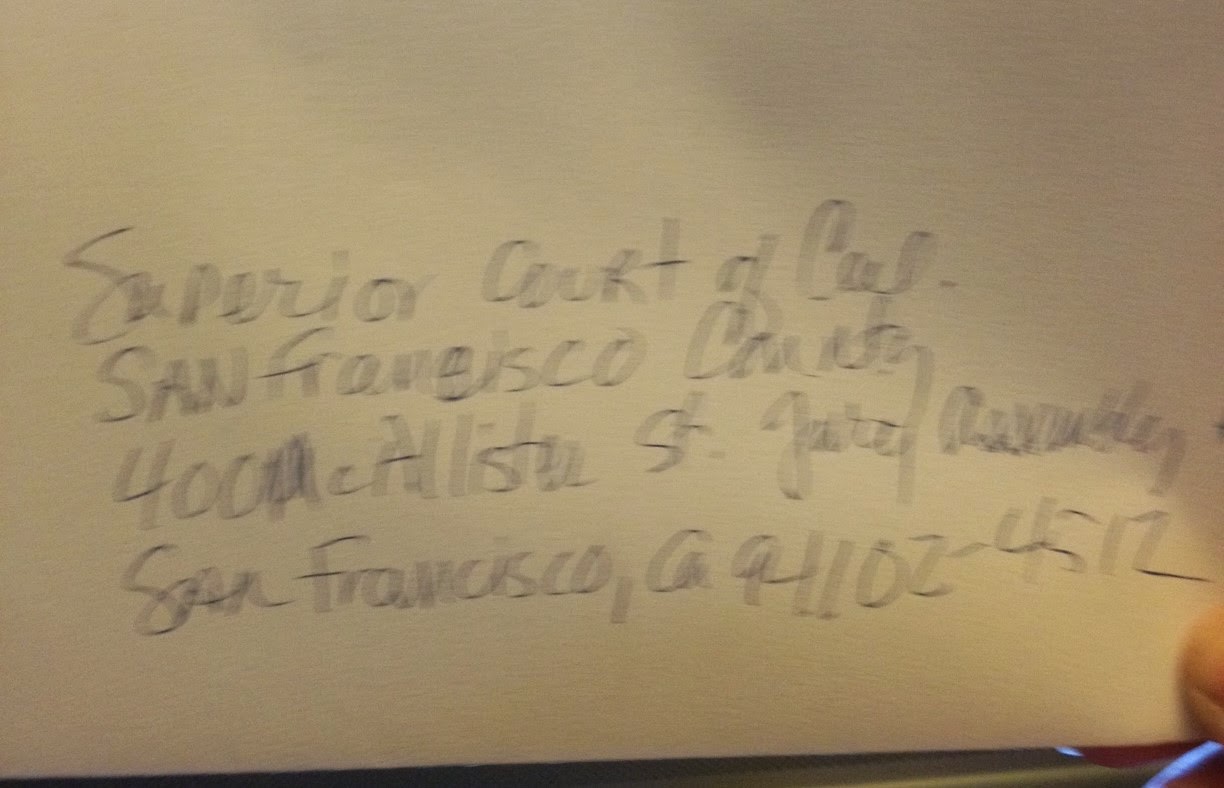 Superior Court of Cal.
SAN Francisco County
400 McAllister St. Jury Assembly
San Francisco, Ca 94102-4512